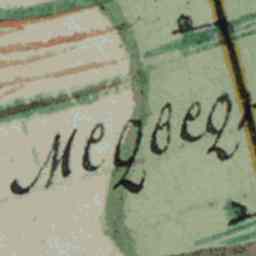 Медвед